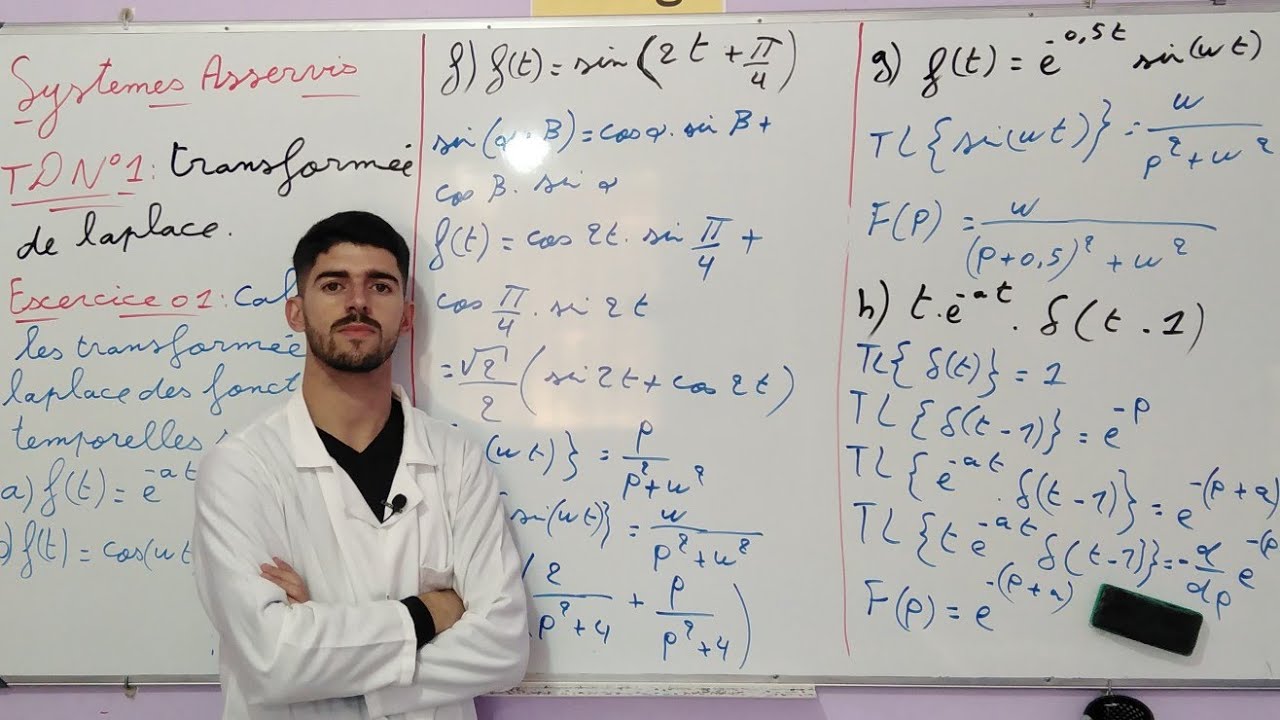 Systemes Asservis
TD N°1: transformée
de laplace.
Exercice 01: Cal
les transformée
laplace des fonct
temporelles
a) f(t) = e^-at
f(t) = cos(wt
f) f(t) = sin(2t + π/4)
sin(α+B) = cos α. sin B +
cos B. sin α
f(t) = cos 2t. sin π/4 +
cos π/4. sin 2t
= √2/2 (sin 2t + cos 2t)
(wt)} = p/(p²+w²)
sin(wt)} = w/(p²+w²)
2/(p²+4) + p/(p²+4))
g) f(t) = e^-0,5t sin(wt)
TL{sin(wt)} = w/(p²+w²)
F(p) = w/((p+0,5)²+w²)
h) t.e^-at. δ(t-1)
TL{δ(t)} = 1
TL{δ(t-1)} = e^-p
TL{e^-at. δ(t-1)} = e^-(p+a)
TL{t e^-at δ(t-1)} = -d/dp e^-(p
F(p) = e^-(p+a)